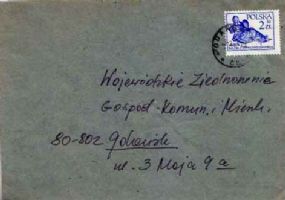 POLSKA
2 zł
Wojewódzkie Zjednoczenie
Gospod. Komun. i Mieszk.
80-802 Gdańsk
ul. 3 Maja 9a